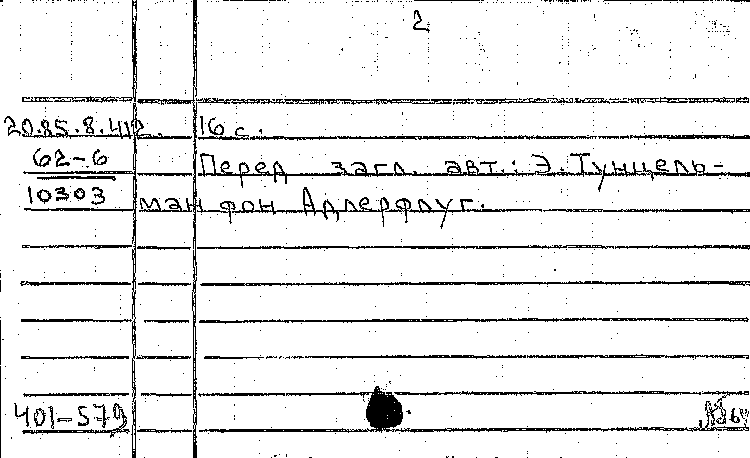 2
20.85.8.412. 16 с.
62-6 Перед загл. авт.: Э. Тунцель-
10303 ман фон Адлерфлуг.
401-579